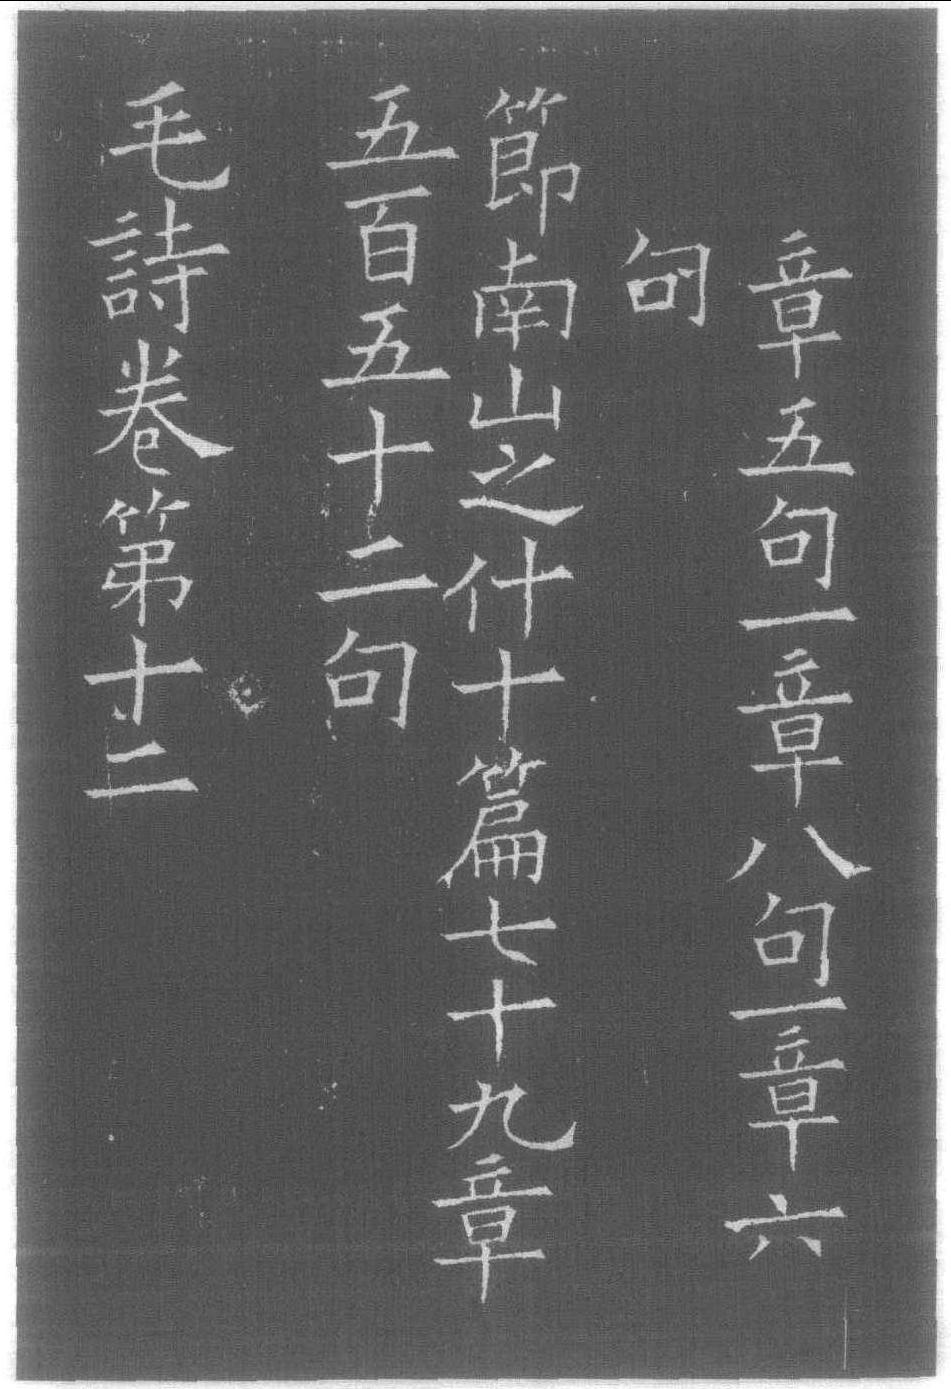 章五句一章八句一章六
句
節南山之什十篇七十九章
五百五十二句
毛詩卷第十二